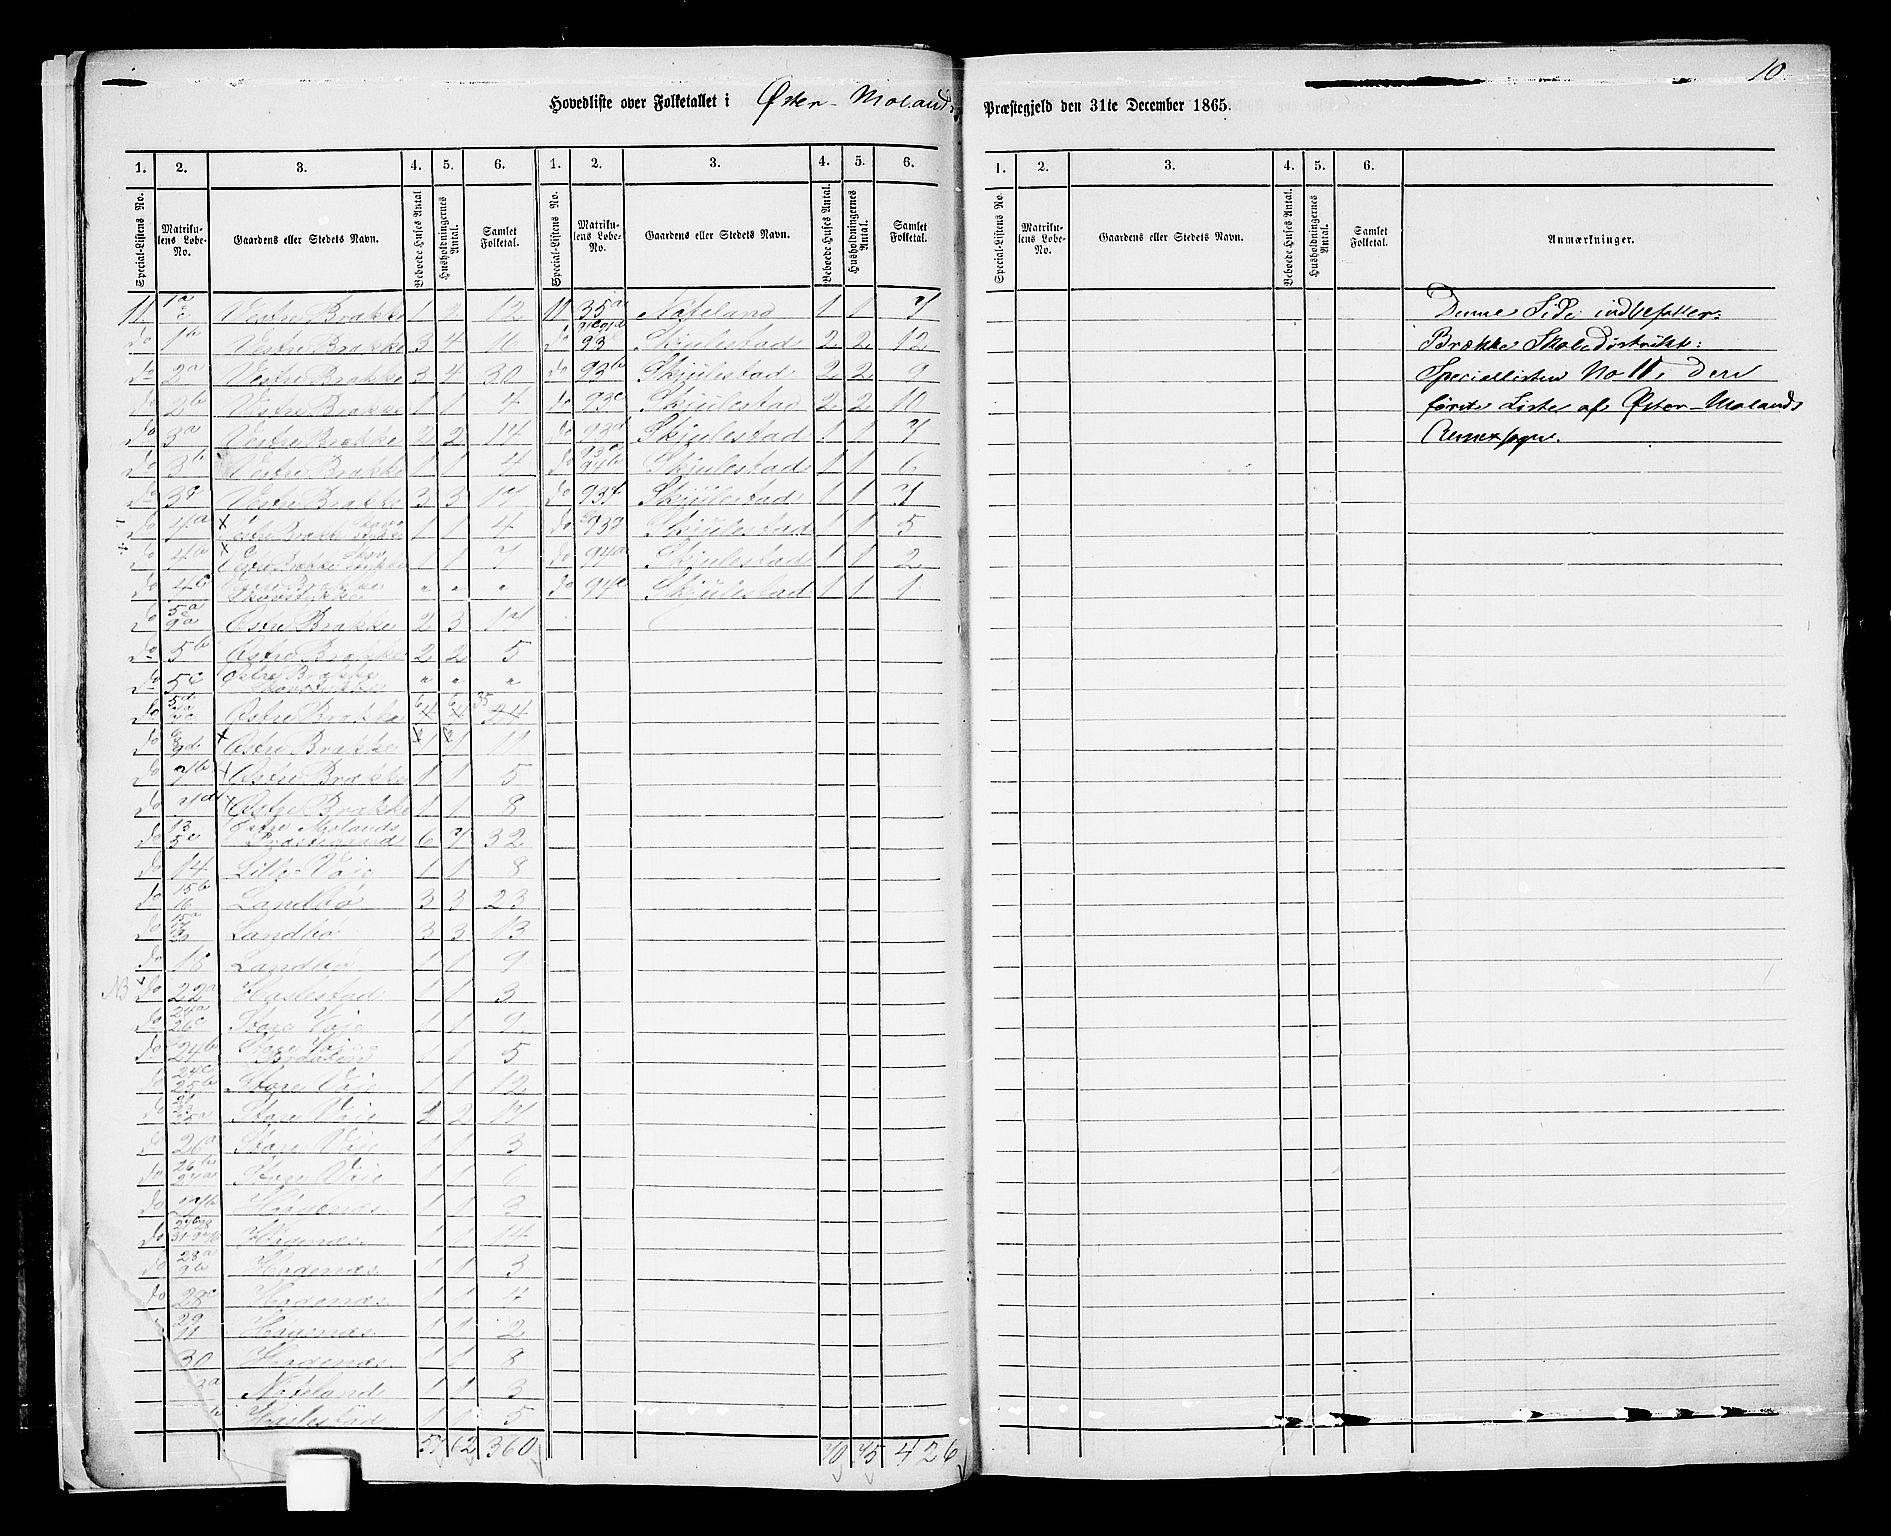 10
Hovedliste over Folketallet i Øster-Molands Præstegjeld den 31te December 1865.
1. 2. 3. 4. 5. 6. 1. 2. 3. 4. 5. 6.
Special-Listens No. Matrikulens Løbe-No. Gaardens eller Stedets Navn. Beboede Huses Antal Husholdningernes Antal. Samlet Folketal. Special-Listens No. Matrikulens Løbe-No. Gaardens eller Stedets Navn. Beboede Huses Antal. Husholdningernes Antal. Samlet Folketal.
11 Vestre Brække 1 2 12 11 35a 1 1 7
do 1b Vestre Brække 3 4 16 do Skjulestad 2 2 12
do 2a Vestre Brække 3 4 30 do 93b Skjulestad 2 2 9
do 2b Vestre Brække 1 1 4 do 93c Skjulestad 2 2 10
do 3a Vestre Brække 2 2 14 do 93d Skjulestad 1 1 7
do 3b Vestre Brække 1 1 4 Skjulestad 1 1 6
do 3c Vestre Brække 3 3 17 do 93f Skjulestad 1 1 7
do 4a x Vestre Brække 1 1 4 do 93g Skjulestad 1 1 5
do x Vestre Brække 1 1 7 do 94a Skjulestad 1 1 2
do 4c Vestre Brække Skovstykke " " " do 94c Skjulestad 1 1 1
do 5a 9a Østre Brække 2 3 17
do 5b Østre Brække 2 2 5
do 5c Østre Brække Skovstykke " " "
do Østre Brække 6 6 35
do x Østre Brække 1 1 11
do 7b x Østre Brække 1 1 5
do 7d x Østre Brække 1 1 8
do 13 5e Østre Molands Præstegaard 6 7 32
do 14 Lille Vaje 1 1 8
do 15b 16 Landbø 3 3 23
do 15a Landbø 3 3 13
do 18 Landbø 1 1 9
NB do 22a Haslestad 1 1 3
do 24a 26c Store Vaje 1 1 9
do 24b Store Vaje 1 1 5
do 24c 25b Store Vaje 1 1 12
do Store Vaje 2 2 17
do 26a Store Vaje 1 1 3
do 26b Store Vaje 1 1 6
do Høgenæs 1 1 3
do Høgenæs 1 1 14
do 28a Høgenæs 1 1 3
do 28c Høgenæs 1 1
29 11 Høgenæs 1 1 2
30 Høgenæs 1 1 8
1 1 3
Haslestad 1 1 5
57 62 360 70 75 426
1. 2. 3. 4. 5. 6.
Special-Listens No. Matrikulens Løbe-No. Gaardens eller Stedets Navn. Beboede Huses Antal. Husholdningernes Antal. Samlet Folketal. Anmærkninger.
Denne Side indbefatter:
Brække Skoledistrikt:
Speciallisten No 11, den
første Liste af Øster-Molands
Annexsogn.